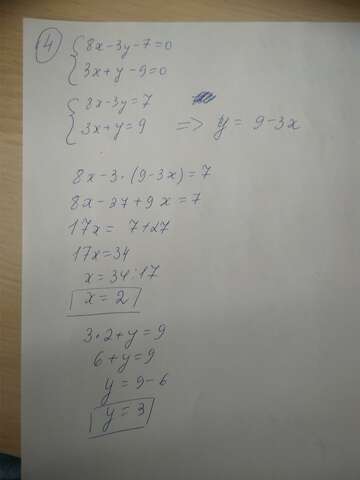 4) 8x-3y-7=0
3x+y-9=0
8x-3y=7
3x+y=9 => y = 9-3x
8x-3·(9-3x)=7
8x-27+9x=7
17x= 7+27
17x=34
x=34:17
x=2
3·2+y=9
6+y=9
y=9-6
y=3